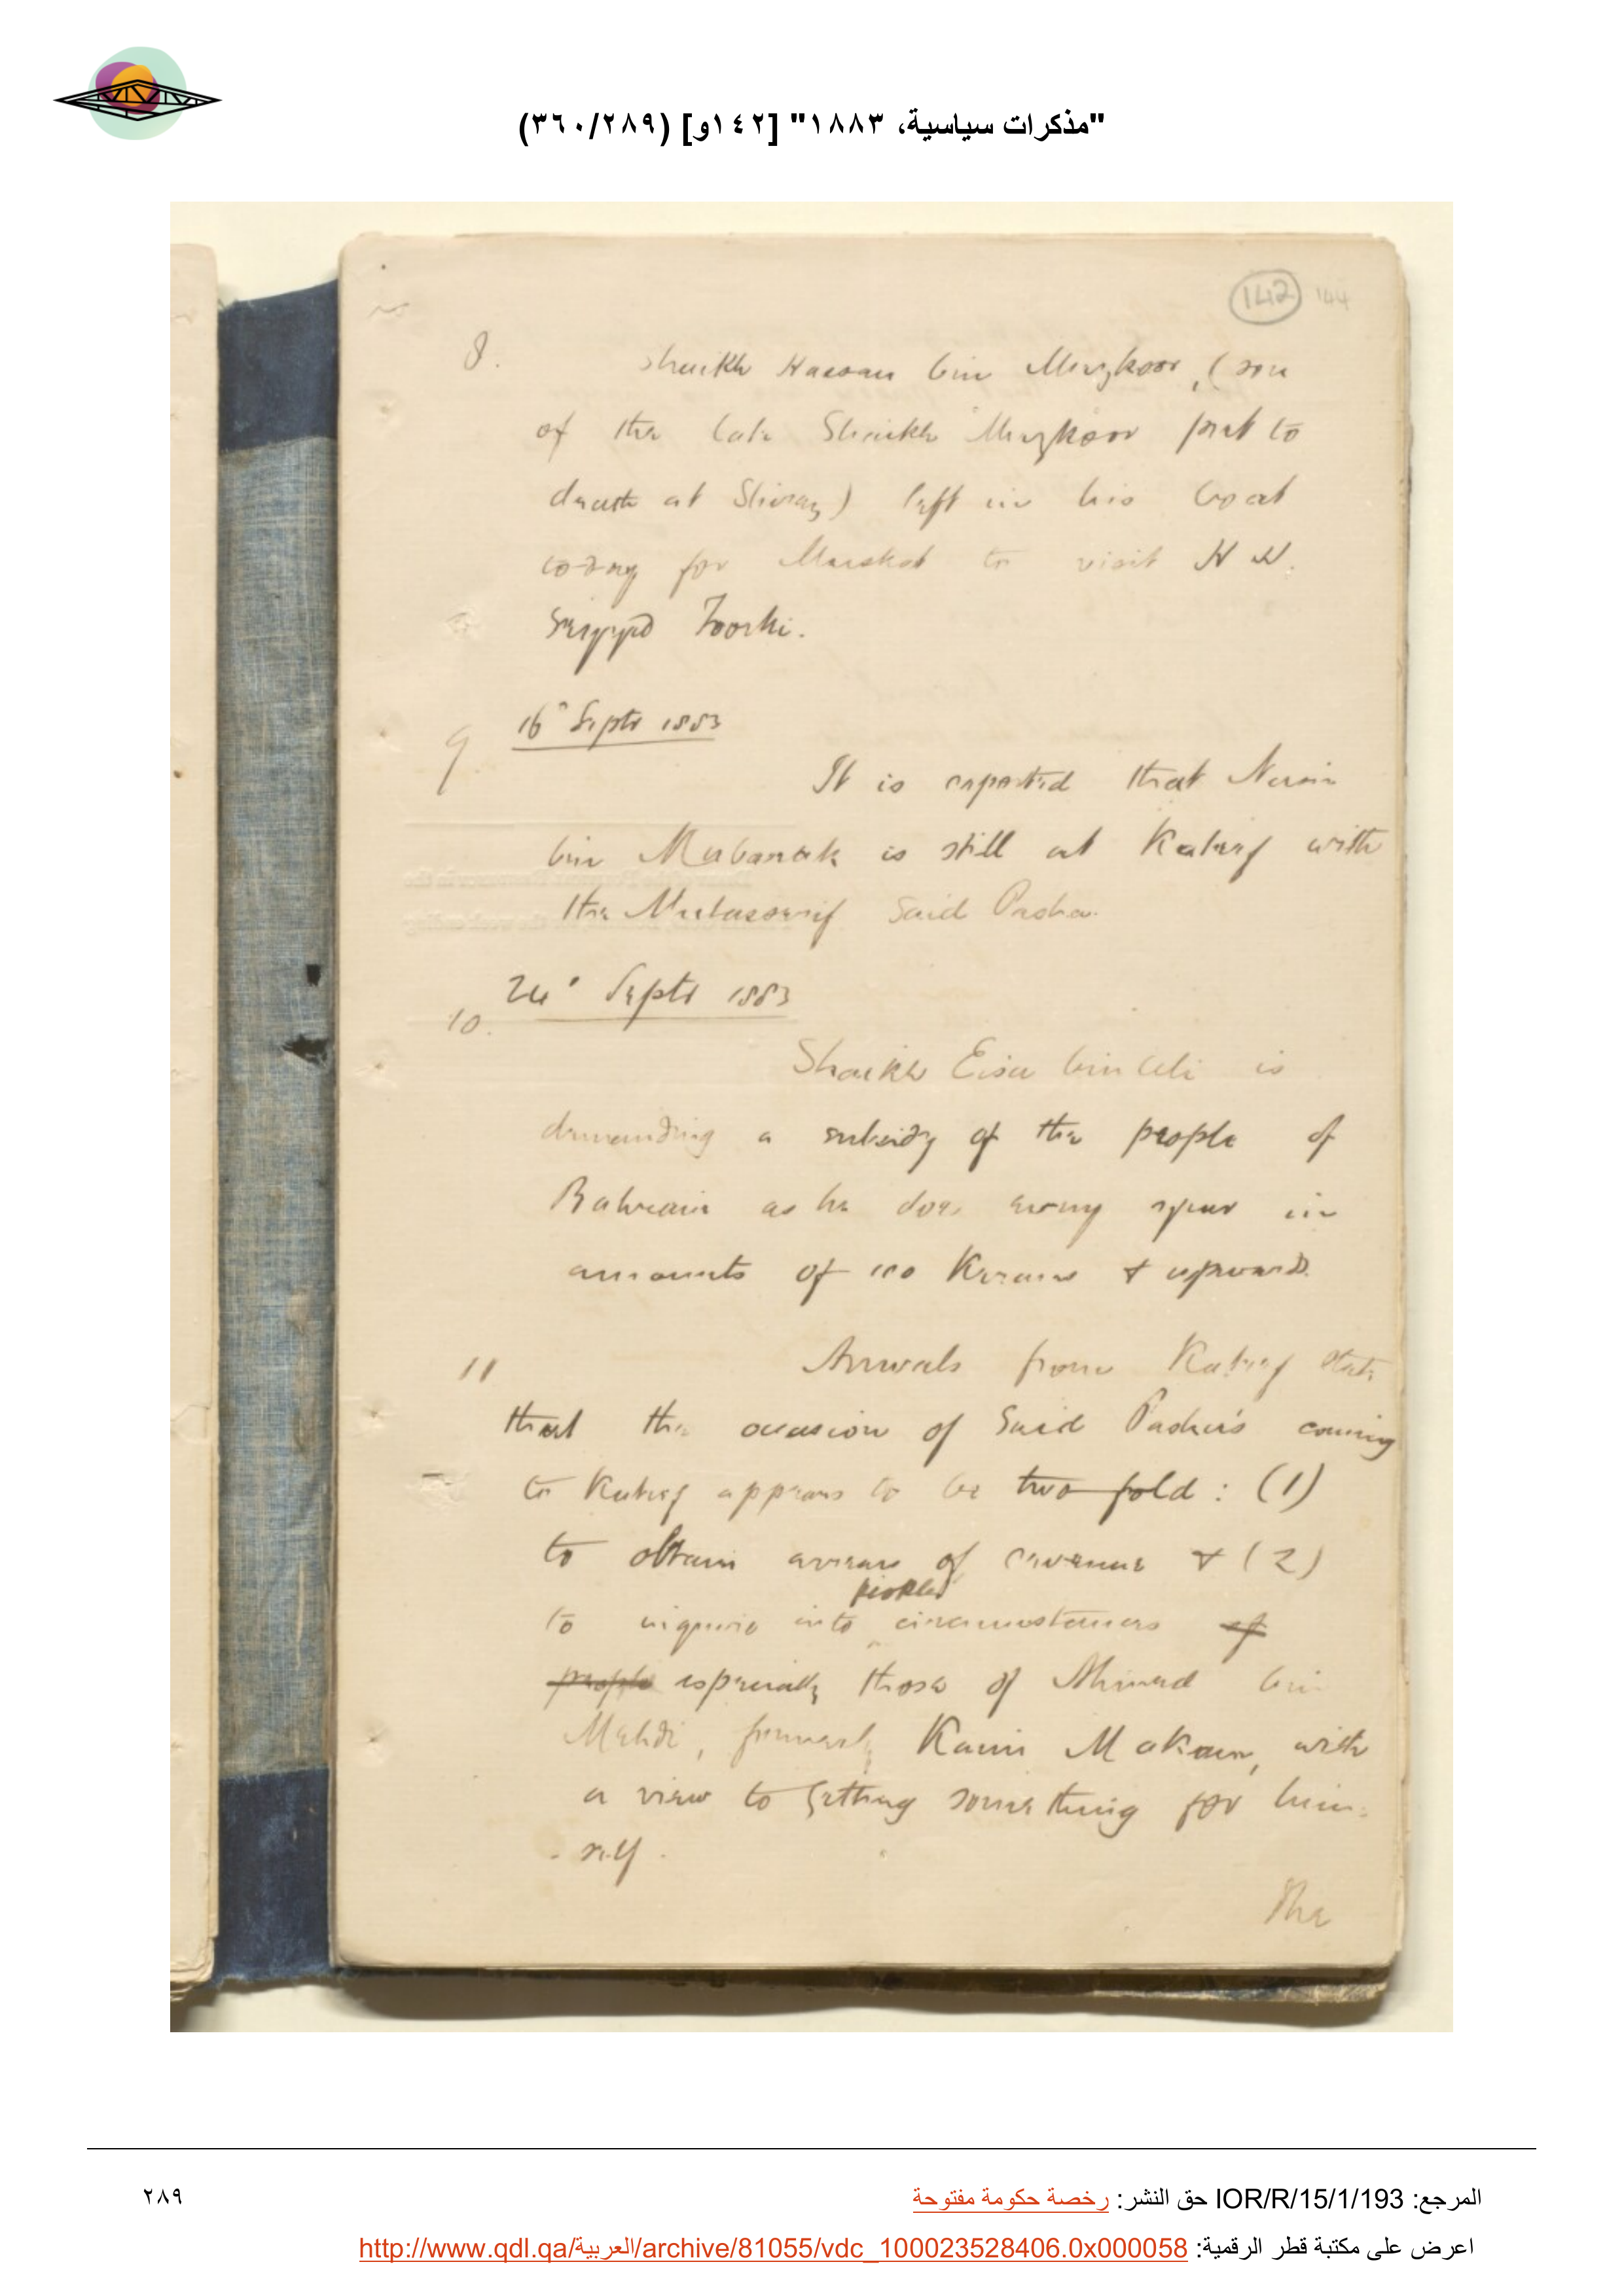 "مذكرات سياسية، ١٨٨٣" [١٤٢و] (٢٨٩/٣٦٠)
142 144
8. Shaikh Hassan bin Mezkoor, (son
of the late Shaikh Mezkoor put to
death at Shiraz) left in his boat
for Muskat to visit H H.
Seyyid Toorki.
16" Septr 1883
9 It is reported that Nasir
bin Mubarak is still at Katief with
the Mutassarif Said Pasha.
24" Septr 1883
10. Shaikh Eisa bin Ali is
demanding a subsidy of the people of
Bahrain as he does every year in
amounts of 100 Kerans & upwards.
11 Arrivals from Katief state
that the occasion of Said Pasha's coming
to Katief appears to be two fold: (1)
to obtain arrears of revenue & (2)
peoples
to inquire into circumstances of
people especially those of Ahmed bin
Mehdi, formerly Kaim Makam, with
a view to getting something for him-
self.
The
المرجع: IOR/R/15/1/193 حق النشر: رخصة حكومة مفتوحة
٢٨٩
اعرض على مكتبة قطر الرقمية: http://www.qdl.qa/العربية/archive/81055/vdc_100023528406.0x000058